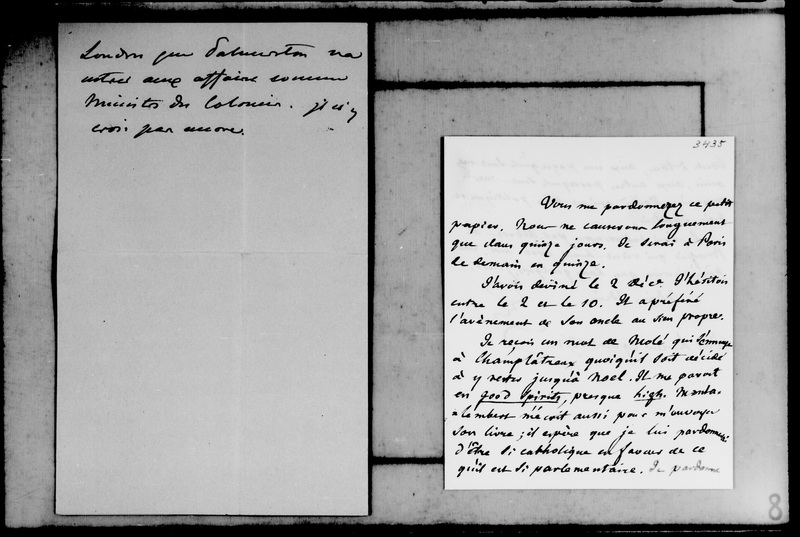 Londres que Palmerston va
entrer aux affaires comme
Ministre des Colonies. je n'y
crois pas encore.
3435
Vous me pardonnerez ce petit
papier. Nous ne causerons longuement
que dans quinze jours. Je serai à Paris
de demain en quinze.
J'avois deviné le 2 Déce. J'hésitois
entre le 2 et le 10. Il a préféré
l'avènement de son oncle au sien propre.
Je reçois un mot de Molé qui s'ennuye
à Champlâtreux quoiqu'il soit décidé
à y rester jusqu'à Noel. Il me paroit
en good spirits, presque high. Monta-
=lembert m'écrit aussi pour m'envoyer
son livre ; il espère que je lui pardonnerai
d'être si catholique en faveur de ce
qu'il est si parlementaire. Je pardonne
8